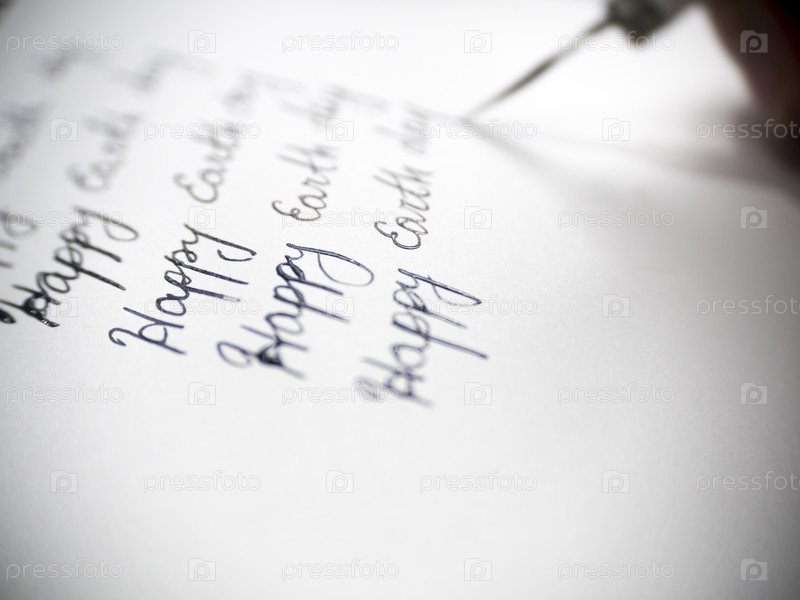 Earth day
Happy Earth day
Happy Earth day
Happy Earth day
Happy Earth day
pressfoto